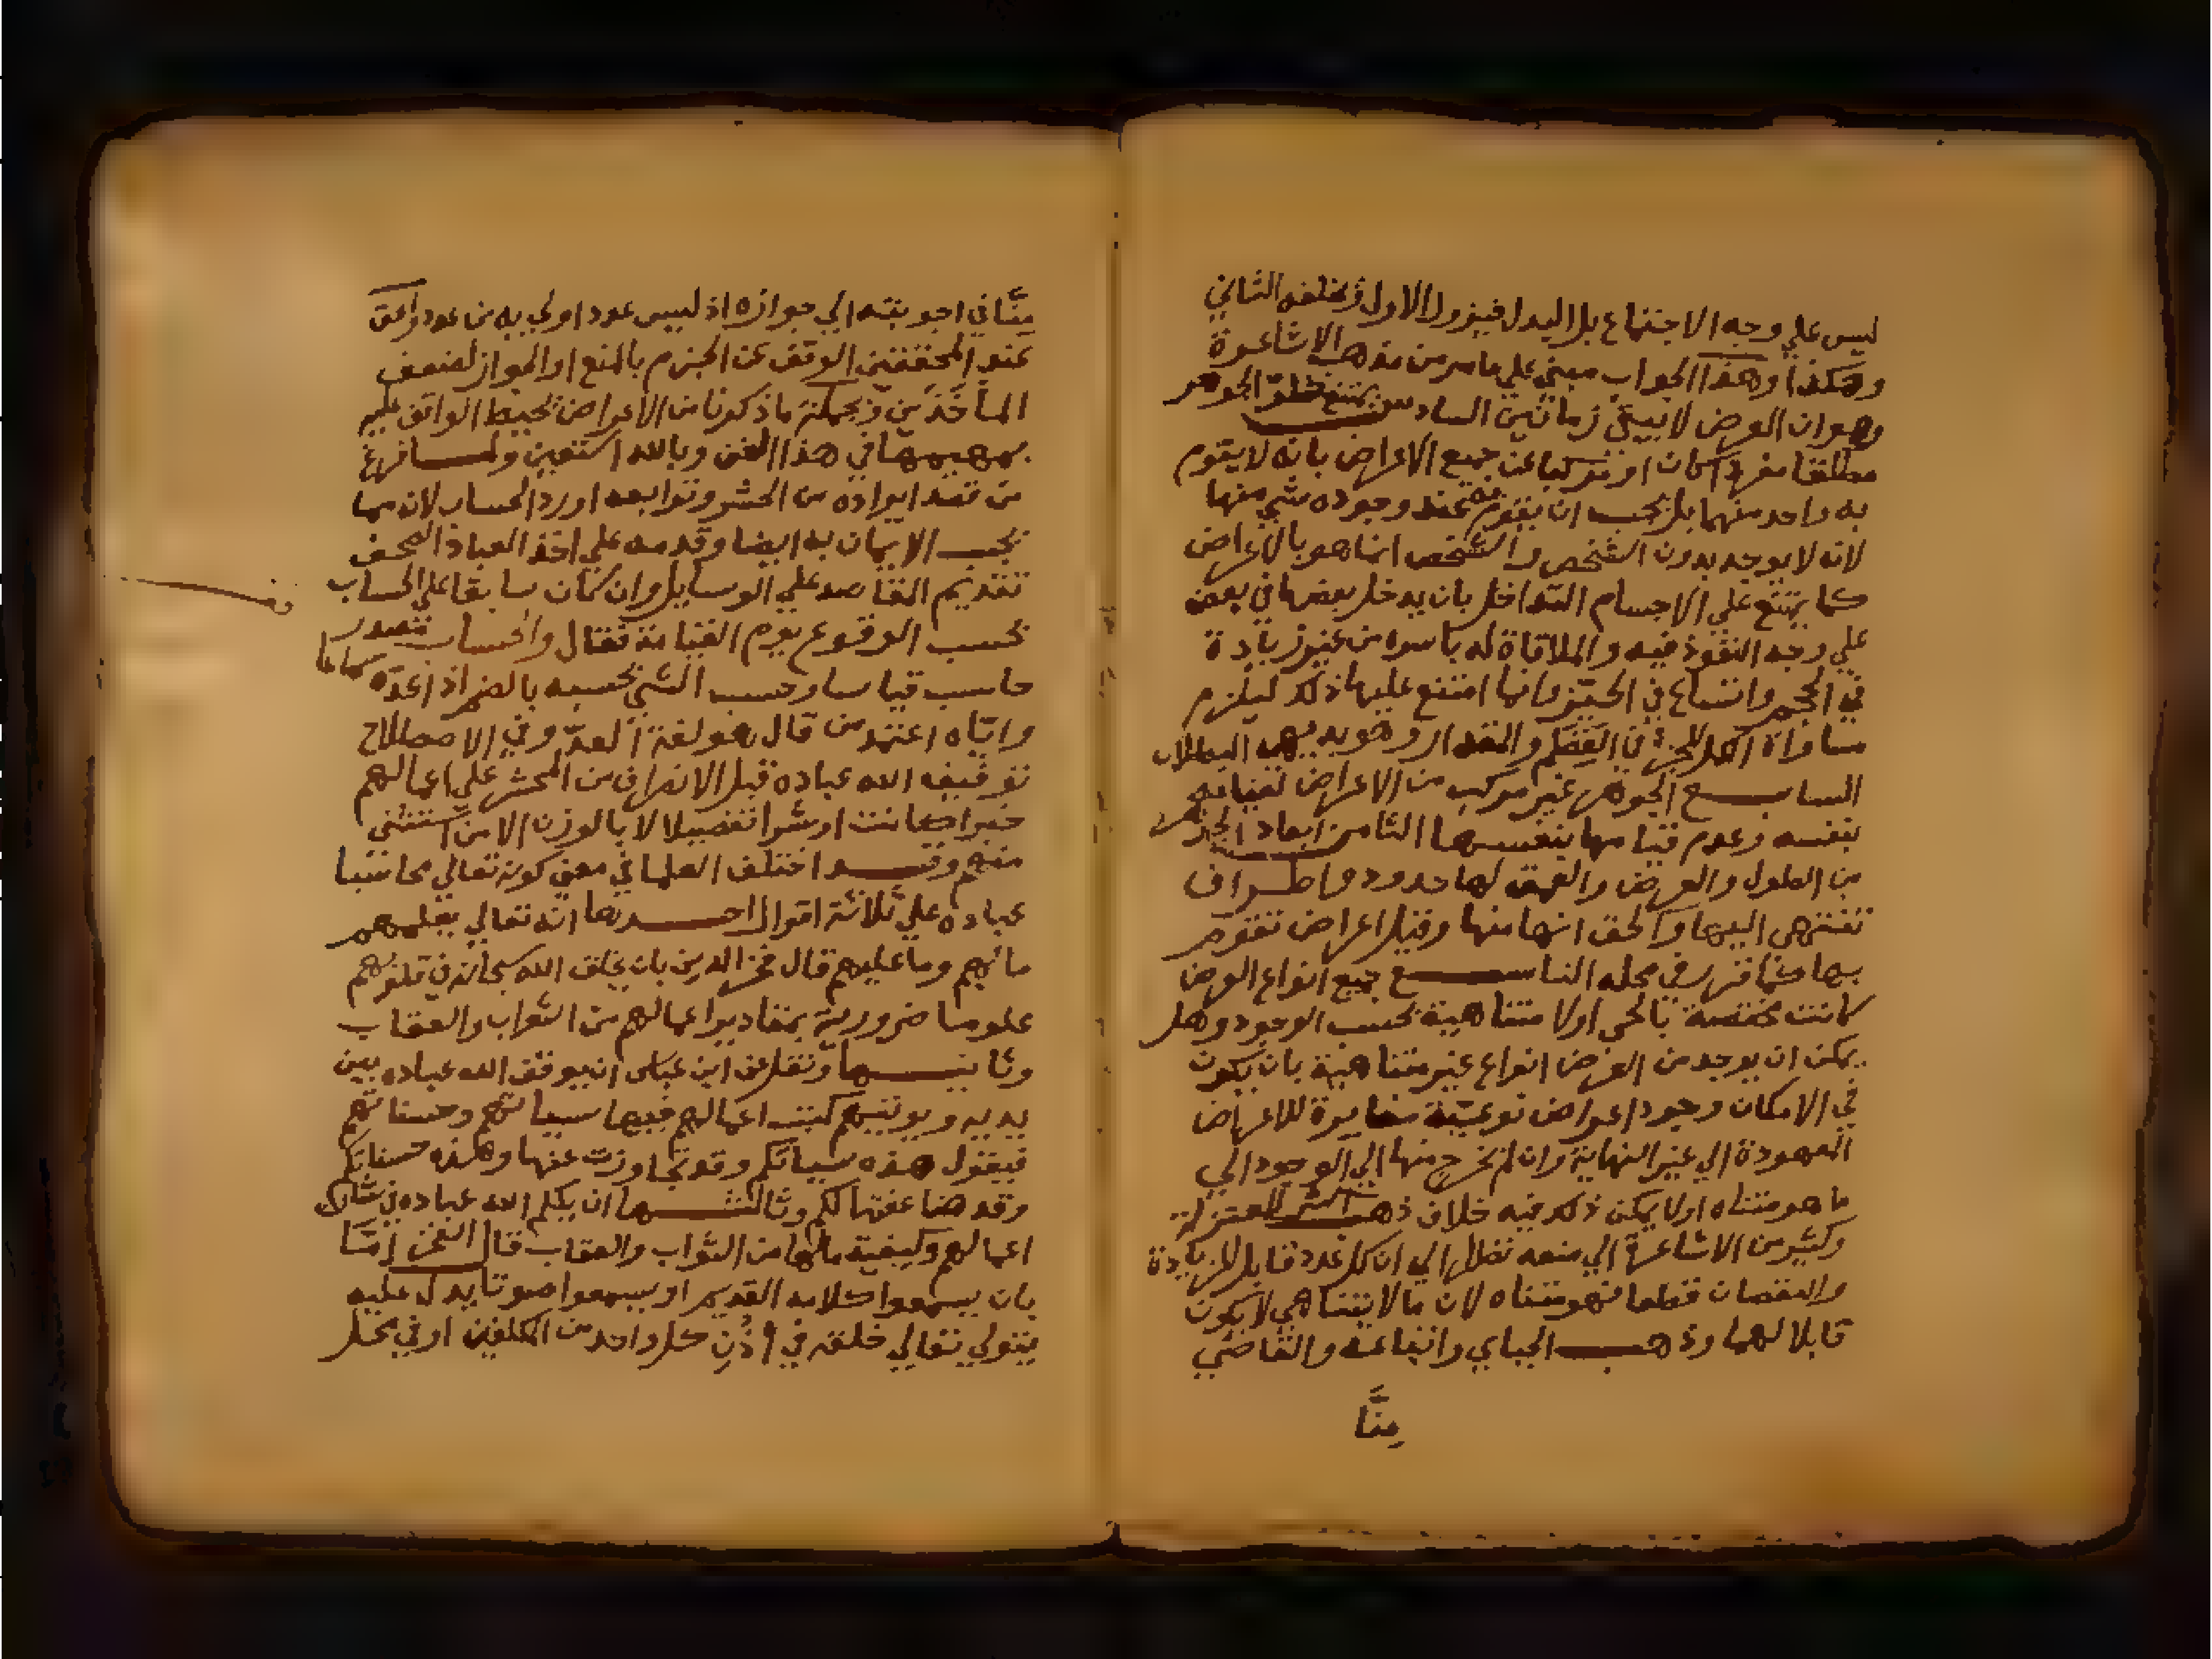 ليس علي وجه الاجتماع بل البدل فيزول الاول ويخلفه الثاني
وهكذا وهذا الجواب مبني علي ما مر من مذهب الاشاعرة
وهو ان العرض لا يبقي زمانين السادس يمتنع خلو الجوهر
مطلقا مفردا كان او مركبا عن جميع الاعراض بانه لا يقوم
به واحد منهما بل يجب ان يقوم به عند وجوده شي منها
لانه لا يوجد بدون التشخص والتشخص انما هو بالاعراض
كما يمتنع علي الاجسام التداخل بان يدخل بعضها في بعض
علي وجه النفوذ فيه والملاقاة له باسره من غير زيادة
في الحجم واتساع في الحيز وانما امتنع عليها ذلك ليلزم
مساواة الكل للجزء في العظم والمقدار وهو بديهي البطلان
السابع الجوهر غير مركب من الاعراض لقيامه
بنفسه وعدم قيامها بنفسها الثامن ابعاد الجوهر
من الطول والعرض والعمق لها حدود واطراف
تنتهي اليها والحق انها منها وقيل اعراض تقوم
بها التاسع جميع انواع العرض
كانت مختصة بالحي اولا متناهية بحسب الوجود وهل
يمكن ان يوجد من العرض انواع غير متناهية بان يكون
في الامكان وجود اعراض نوعية مغايرة للاعراض
المعهودة الي غير النهاية وان لم يخرج منها الي الوجود الي
ما هو متناه اولا يمكن ذلك فيه خلاف ذهب اكثر المعتزلة
وكثير من الاشاعرة الي منعه نظرا الي ان كل عدد قابل للزيادة
والنقصان قطعا فهو متناه لان ما لا يتناهي لا يكون
قابلا لهما وذهب الجباي واتباعه والقاضي
منَّا
منَّا في اجوبته الي جوازه اذ ليس عدد اولي به من عدد والحق
عند المحققين الوقف عن الجزم بالمنع او الجواز لضعف
المأخذين وبجملة ما ذكرنا من الاعراض يحيط الواقف عليه
بمهمها في هذا الفن وبالله استعين ولما فرغ
من قصد ايراده من الحشر وتوابعه اورد الحساب لانه مما
يجب الايمان به ايضا وقدمه علي اخذ العباد الصحف
تقديم المقاصد علي الوسايل وان كان سابقا علي الحساب
بحسب الوقوع يوم القيامة فقال والحساب مصدر
حاسب قياسا وحسب الشي يحسبه بالضم اذا عدّه
واياه اعتمد من قال هو لغة العدّ وفي الاصطلاح
توقيف الله عباده قبل الانصراف من المحشر علي اعمالهم
خيرا كانت او شرا تفصيلا لا بالوزن الا من استثني
منهم وقد اختلف العلما في معني كونه تعالي محاسبا
عباده علي ثلاثة اقوال احدها انه تعالي يعلمهم
ما لهم وما عليهم قال فخر الدين بان يخلق الله سبحانه في قلوبهم
علوما ضرورية بمقادير اعمالهم من الثواب والعقاب
وثانيها ونقل عن ابن عباس ان يوقف الله عباده بين
يديه ويوتيهم كتب اعمالهم فيها سيياتهم وحسناتهم
فيقول هذه سياتكم وقد تجاوزت عنها وهذه حسناتكم
وقد ضاعفتها لكم وثالثها ان يكلم الله عباده في شان
اعمالهم وكيفية ما لها من الثواب والعقاب قال الفخر امّا
بان يسمعوا كلامه القديم او يسمعوا صوتا يدل عليه
يتولي تعالي خلقه في أُذُنِ كل واحد من المكلفين او في محل